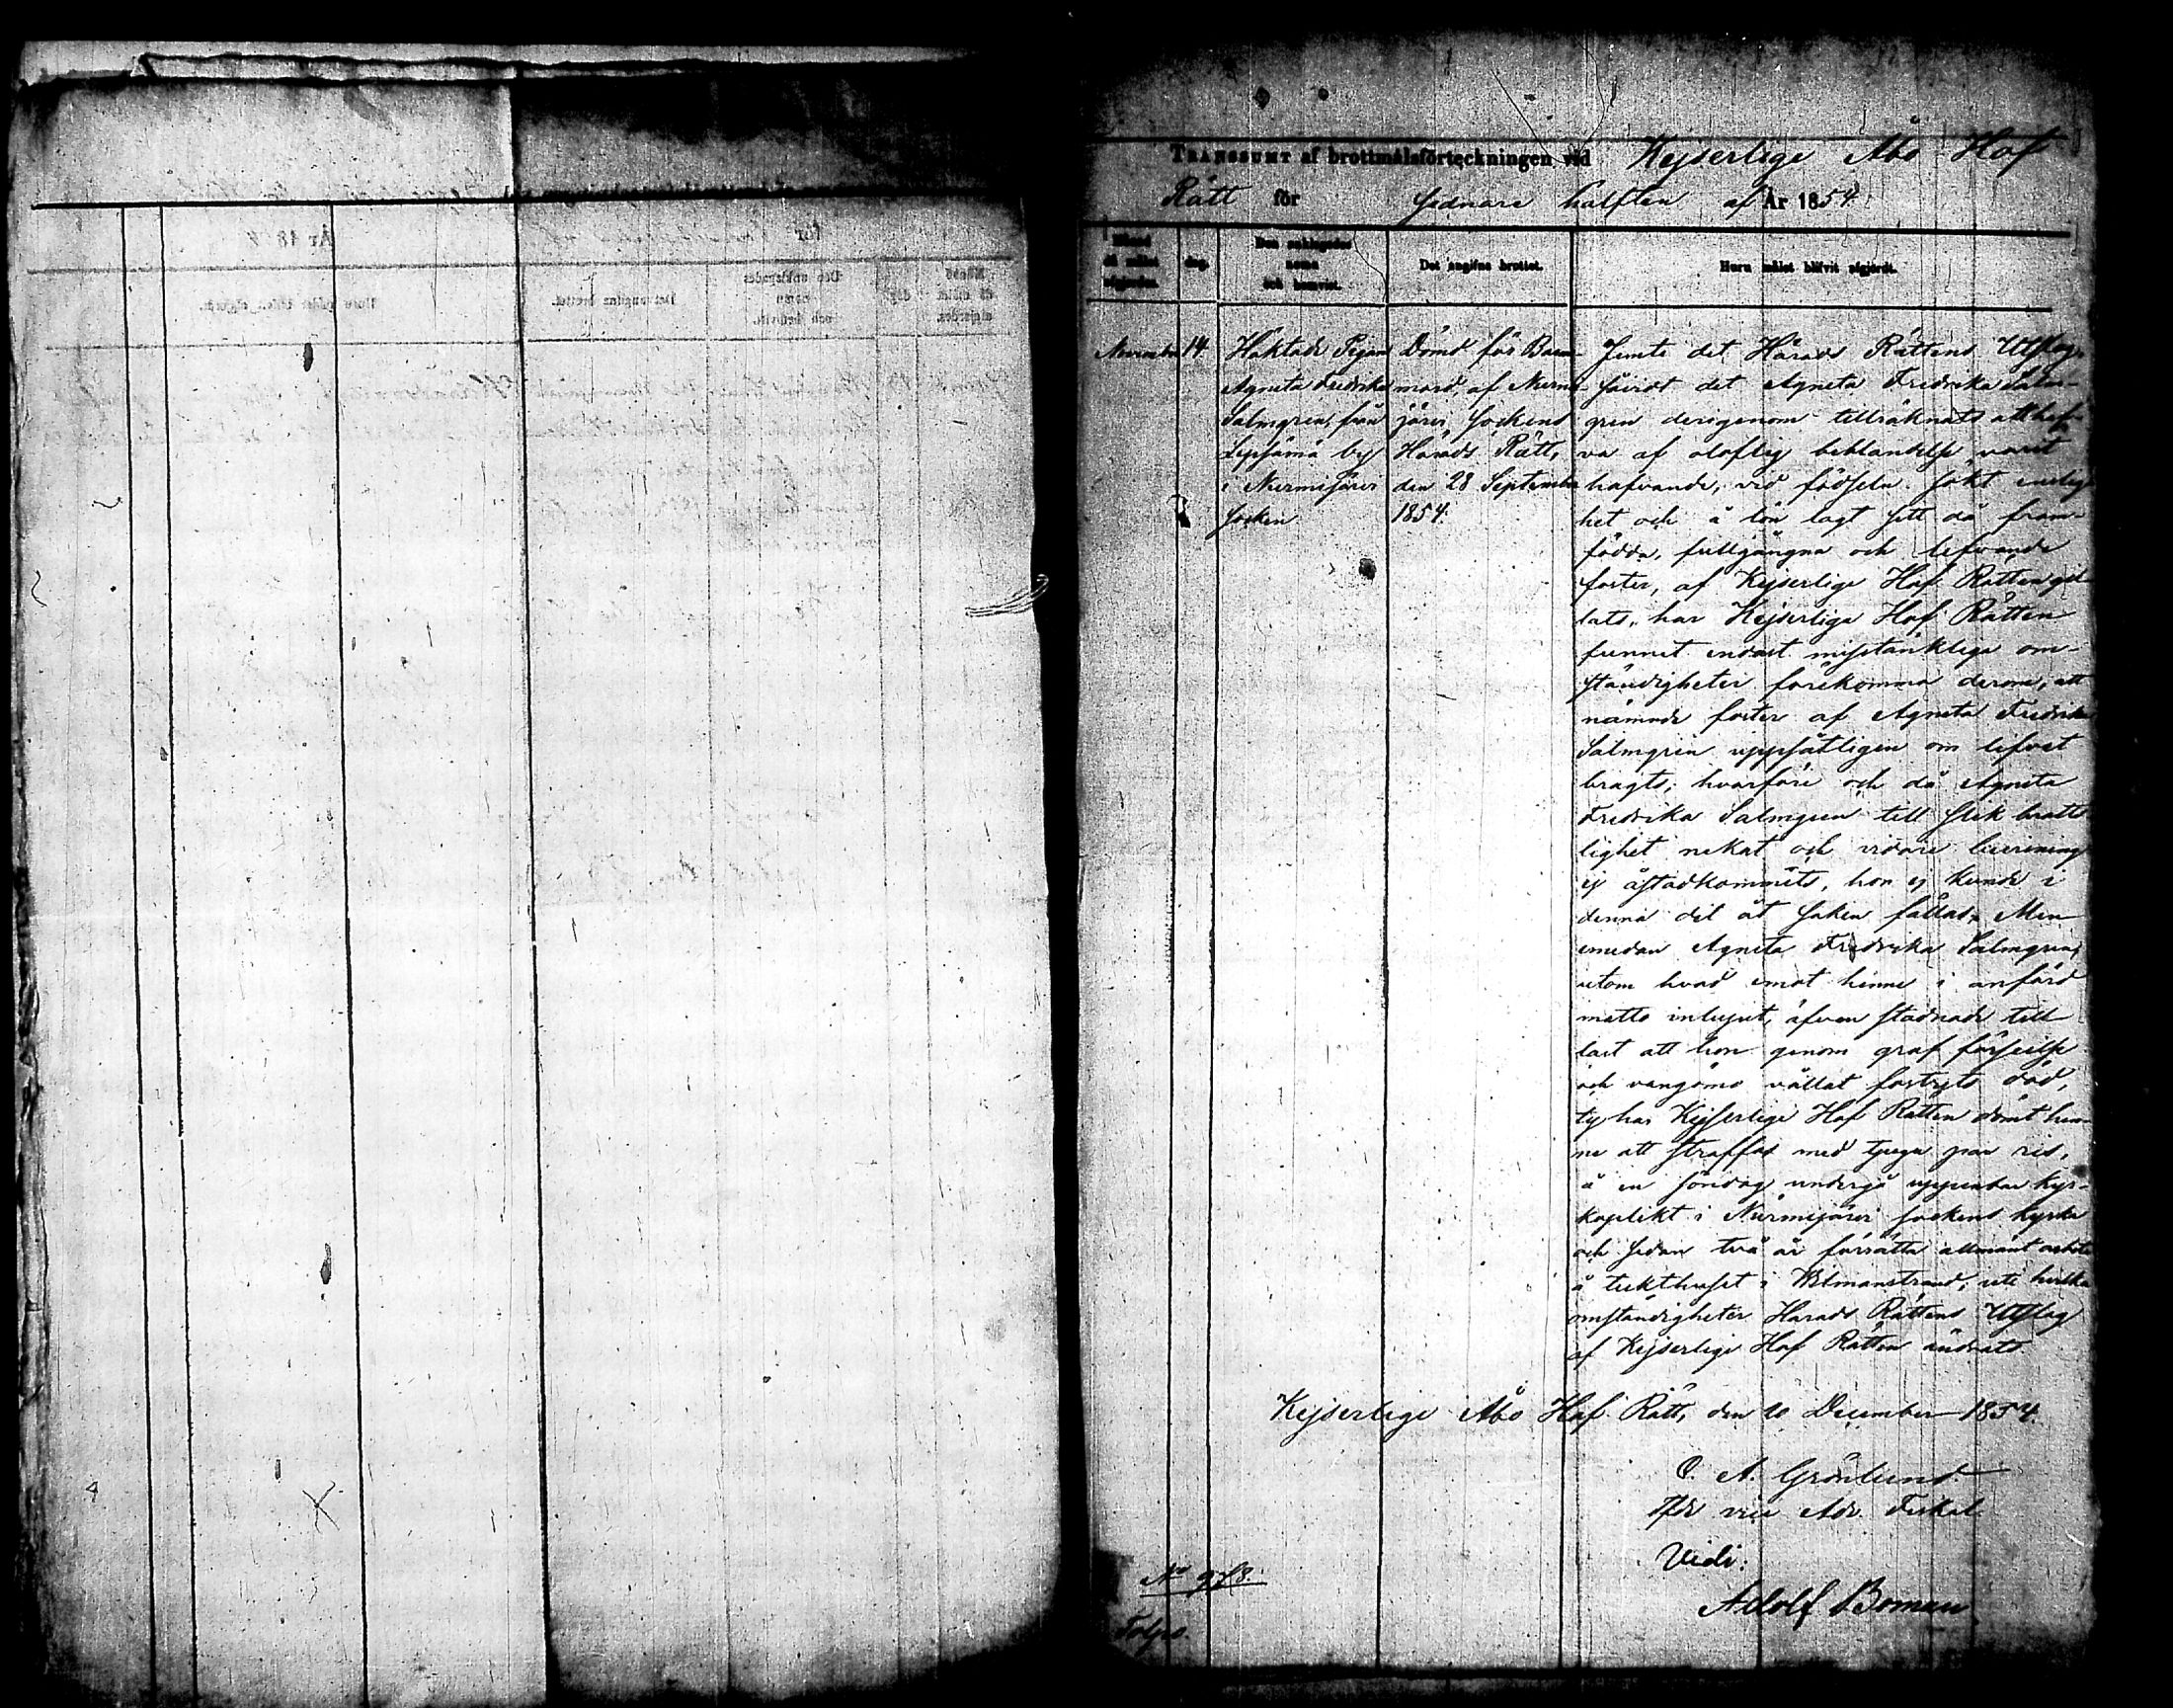 Transsumt af brottmålsförteckningen vid Kejserlige Åbo Hof
Rätt för sednare hälften af År 1854.
Månad då målet afgjordes.
dag.
Den anklagades namn och hemvist.
Det angifna brottet.
Huru målet blifvit afgjordt.
November
14
Häktade Pigan
Agneta Fredrika
Salmgren, från
Lepsämä by
i Nurmijärvi
socken
Dömd för Barna-
mord, af Nurmi-
järvi sockens
Härads Rätt,
den 28 September
1854.
Jemte det Härads Rättens Utslag,
såvidt det Agneta Fredrika Salm-
gren derigenom tillräknats att haf-
va af oloflig beblandelse varit
hafvande, vid födseln sökt enslig-
het och å lön lagt sitt då fram-
födda, fullgångna och lefvande
foster, af Kejserlige Hof Rätten gil-
lats, har Kejserlige Hof Rätten
funnit endast misstänkliga om-
ständigheter förekomma derom, att
nämnde foster af Agneta Fredrika
Salmgren uppsåtligen om lifvet
bragts; hvarföre och då Agneta
Fredrika Salmgren till slik brotts-
lighet nekat och vidare bevisning
ej åstadkommits, hon ej kunde i
denna del åt saken fällas. Men
emedan Agneta Fredrika Salmgren,
utom hvad emot henne i anförd
måtto inlupit, äfven stadnade till
last att hon genom graf förseelse
och vangömo vållat fostrets död,
ty har Kejserlige Hof Rätten dömt hen-
ne att straffas med tjugu par ris,
å en söndag undergå uppenbar kyr-
koplikt i Nurmijärvi sockens kyrka
och sedan två år förrätta allmänt arbete
å tukthuset i Wilmanstrand; uti hvilka
omständigheter Härads Rättens Utslag
af Kejserlige Hof Rätten ändrats
Kejserlige Åbo Hof Rätt, den 20 December 1854.
C. A. Grönlund.
Tfdr vice Adv. Fiskal.
Vidi:
Adolf Boman
No 978.